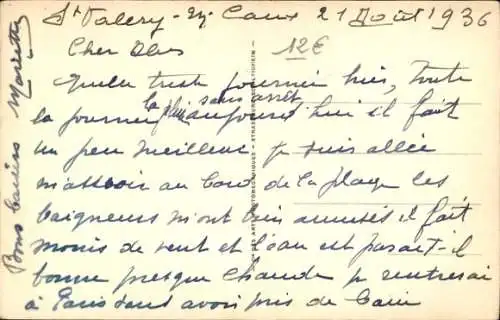 St Valery-En-Caux 21 Août 1936
Cher
12€
Quelle triste journée hier, toute
la journée la pluie sans arrêt aujourd'hui il fait
un peu meilleur je suis allée
m'assoir au bord de la plage les
baigneurs m'ont bien amusés il fait
moins de vent et l'eau est parait-il
bonne presque chaude je rentrerai
à Paris sans avoir pris de bain
Bons baisers